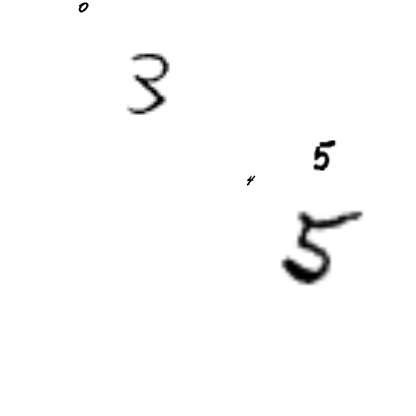 0
3
5
4
5